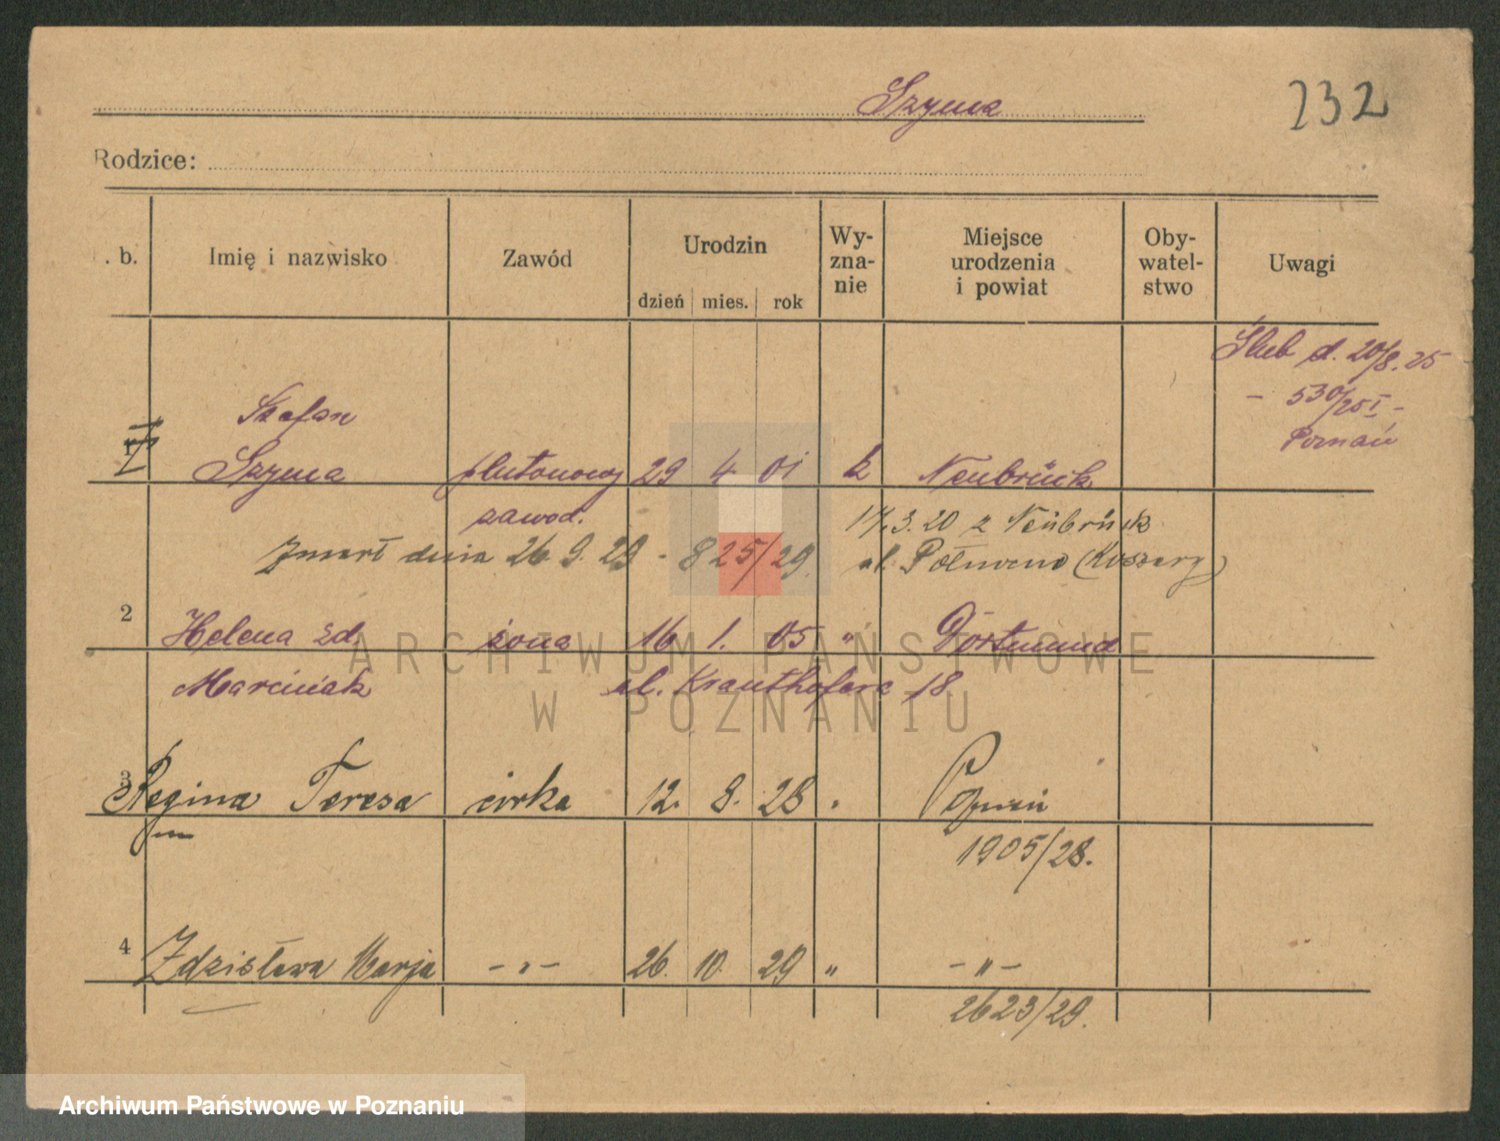 Szyma
232
Rodzice:
. b.
Imię i nazwisko
Zawód
Urodzin
dzień mies. rok
Wy-
zna-
nie
Miejsce
urodzenia
i powiat
Oby-
watel-
stwo
Uwagi
Ślub d. 20/8.25
- 530/25 I -
Poznań
Stefan
Szyma plutonowy 29 4 01 k Neubrück
zawod. 17.3.20 z Neubrück
Zmarł dnia 26.9.29 - 825/29. ul. Północna (Koszary)
2 Helena zd żona 16 1. 05 " Dortmund
Marciniak ul. Krauthofera 18
3 Regina Teresa córka 12. 8. 28 " Poznań
1905/28.
4 Zdzisława Marja -"- 26. 10. 29 " -"-
2623/29.
ARCHIWUM PAŃSTWOWE
W POZNANIU
Archiwum Państwowe w Poznaniu